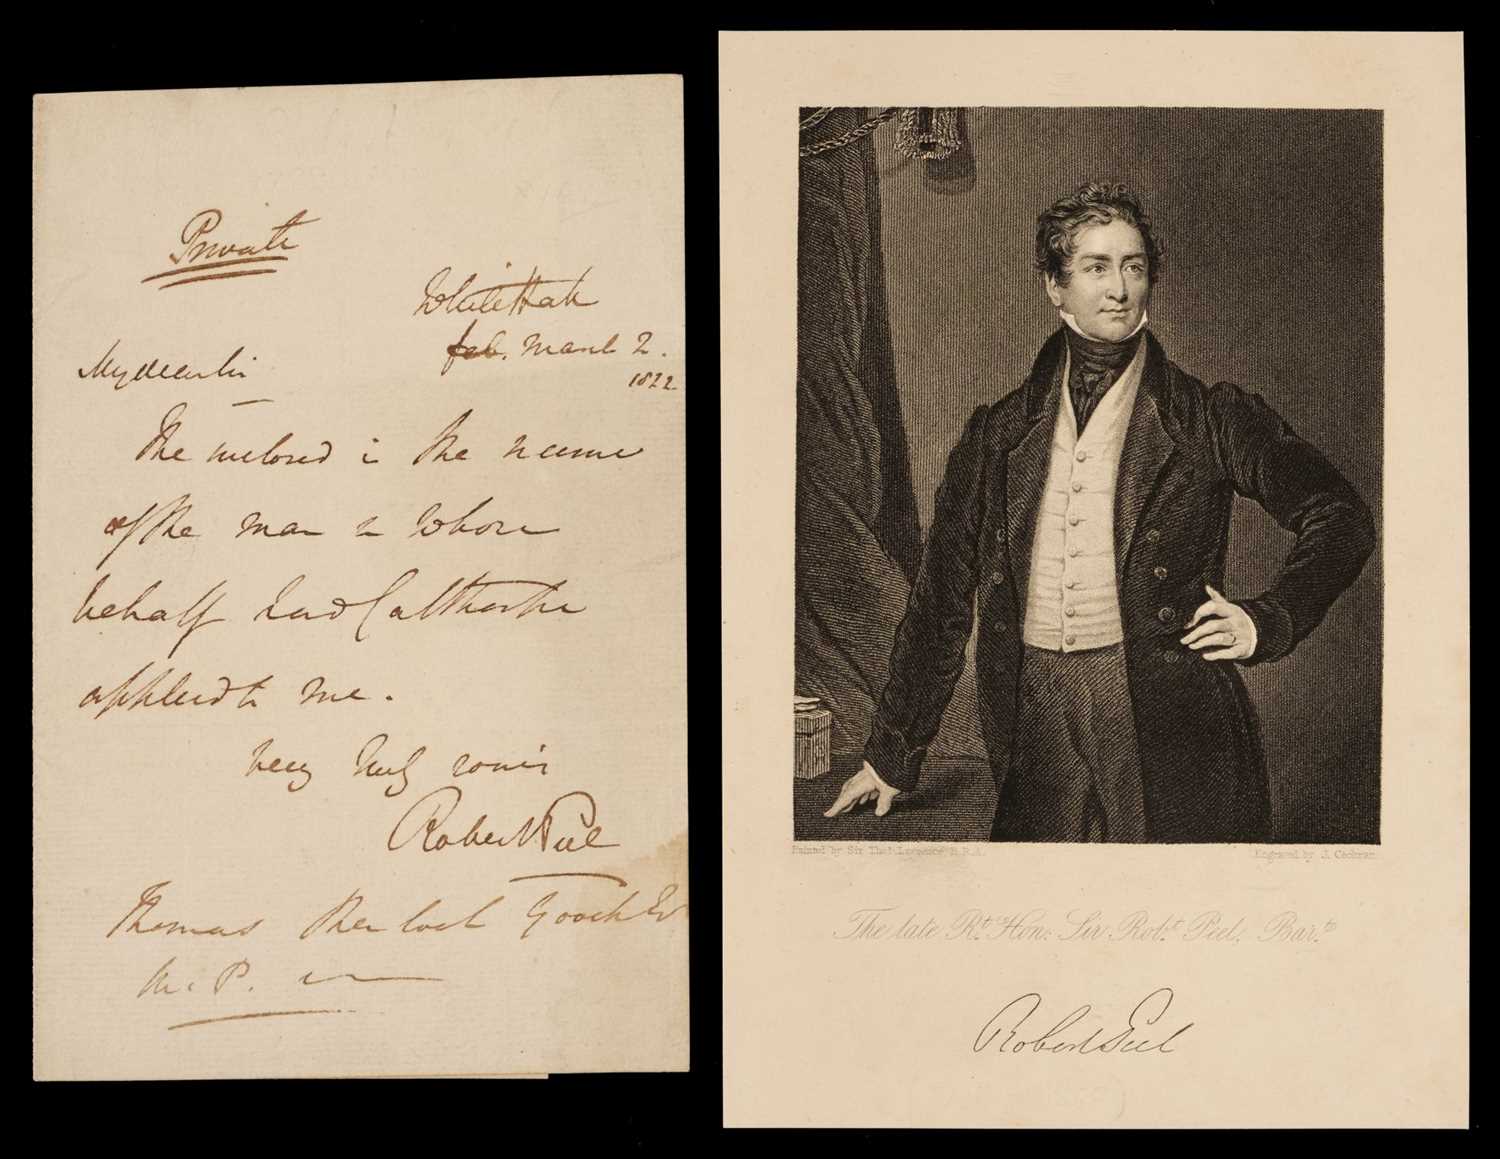 Private
WhiteHall
feb. March 2.
1822
My dear Sir
The inclosed is the name
of the man in whose
behalf Lord Calthorpe
applied to me.
Very truly yours
Robert Peel
Thomas Sherlock Gooch Esq
M.P.
Painted by Sir Thos. Lawrence P.R.A.
Engraved by J. Cochran
The late Rt. Hon: Sir Robt. Peel, Bart.
Robert Peel